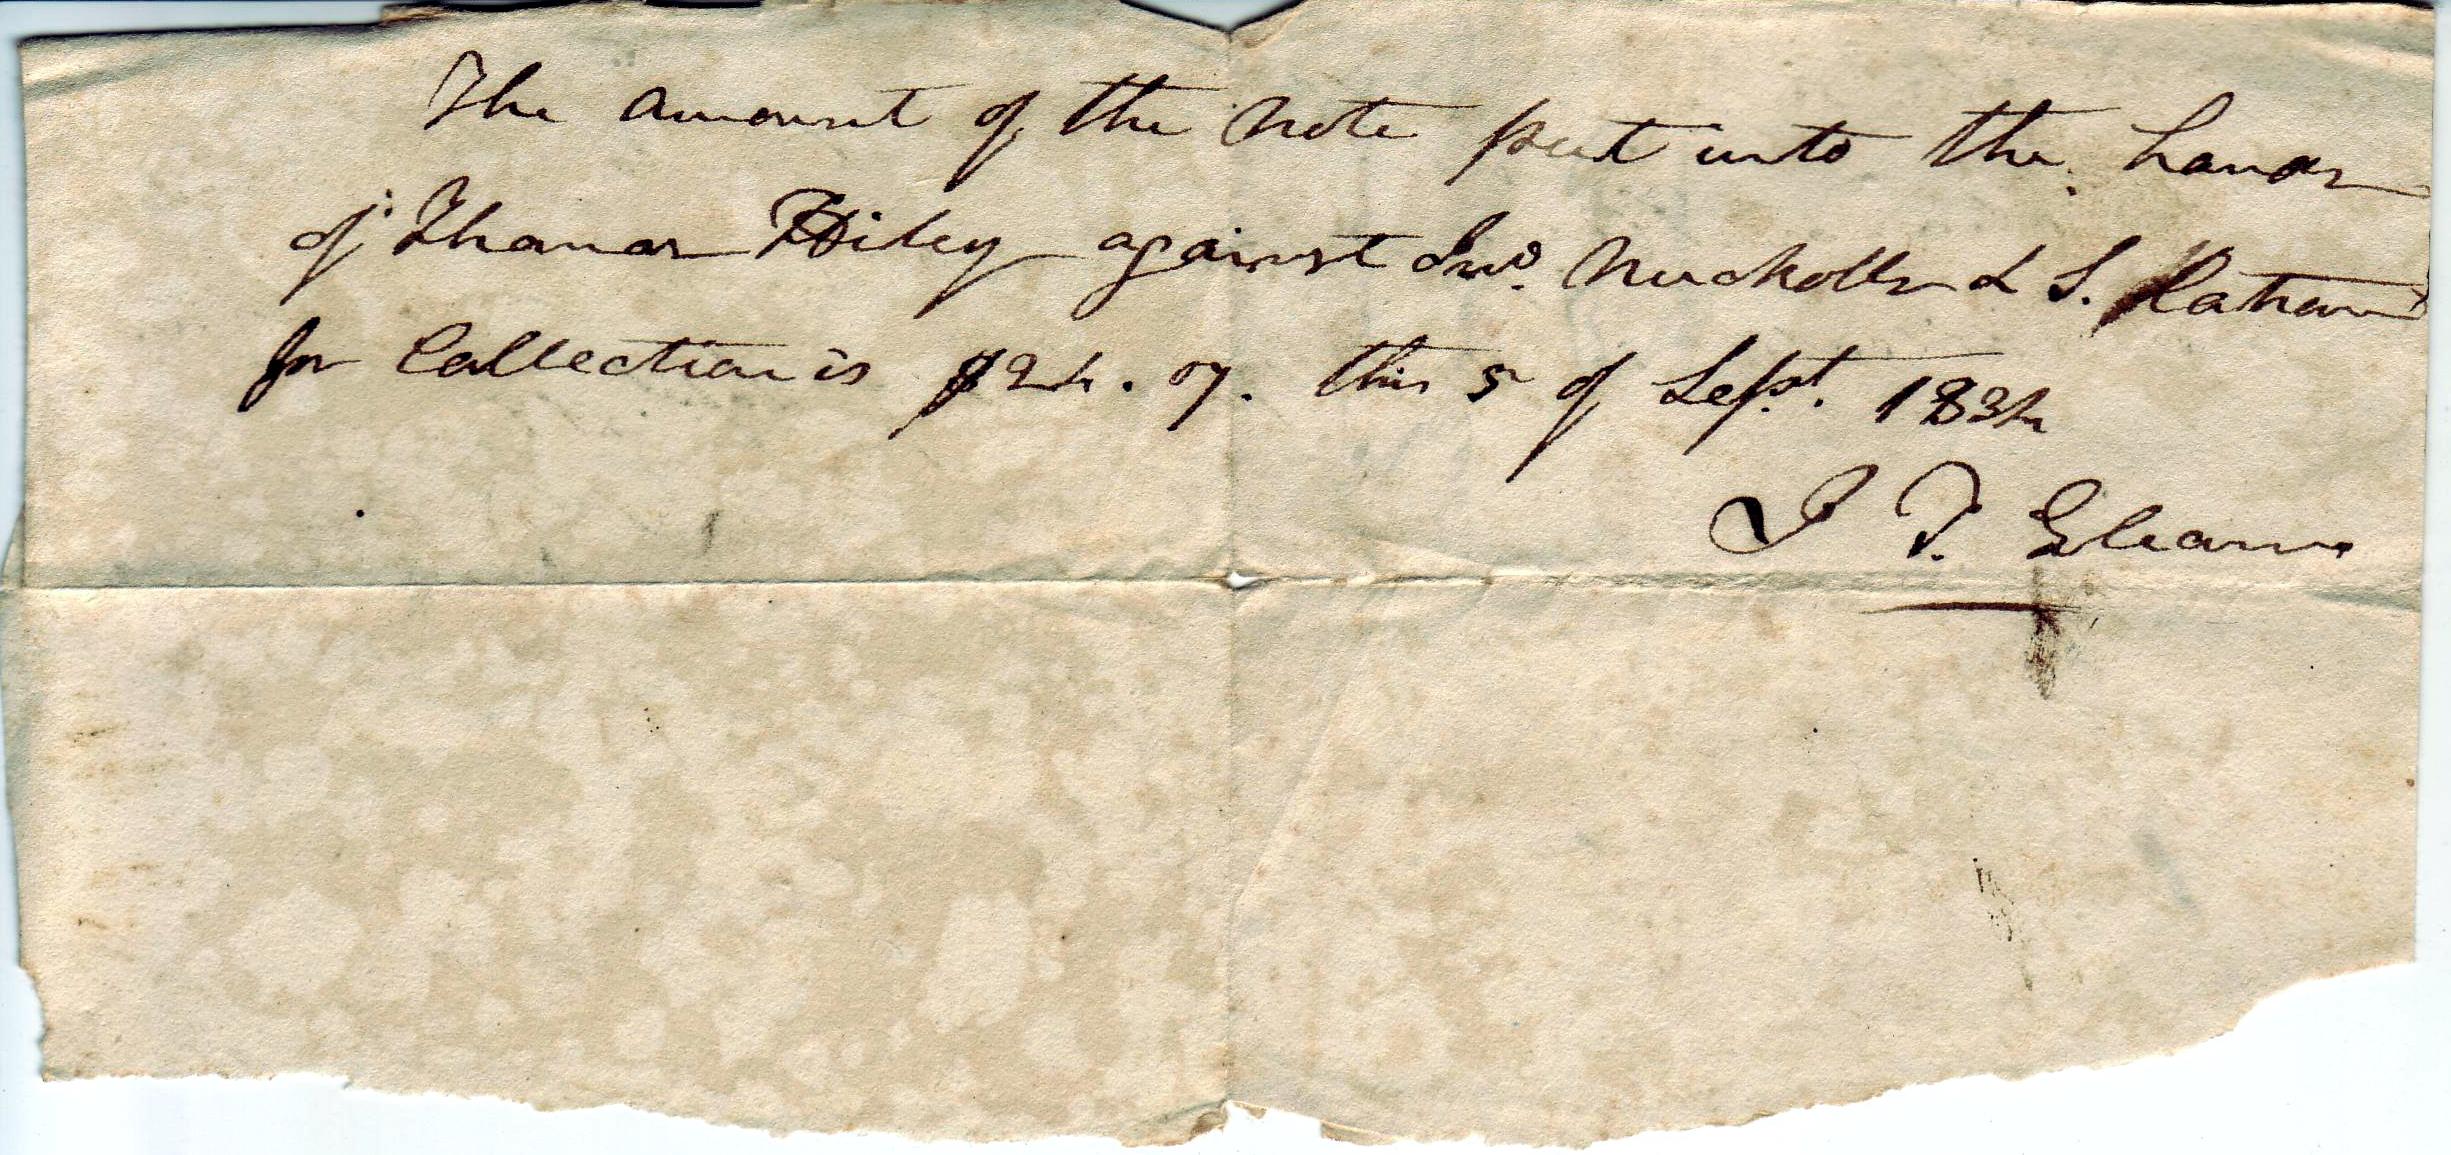 The amount of the Note put into the hands
of Thomas Hiley against Jno. Nuckolls & S. Latham
for Collection is $24.07. this 5 of Sept. 1834
J T.